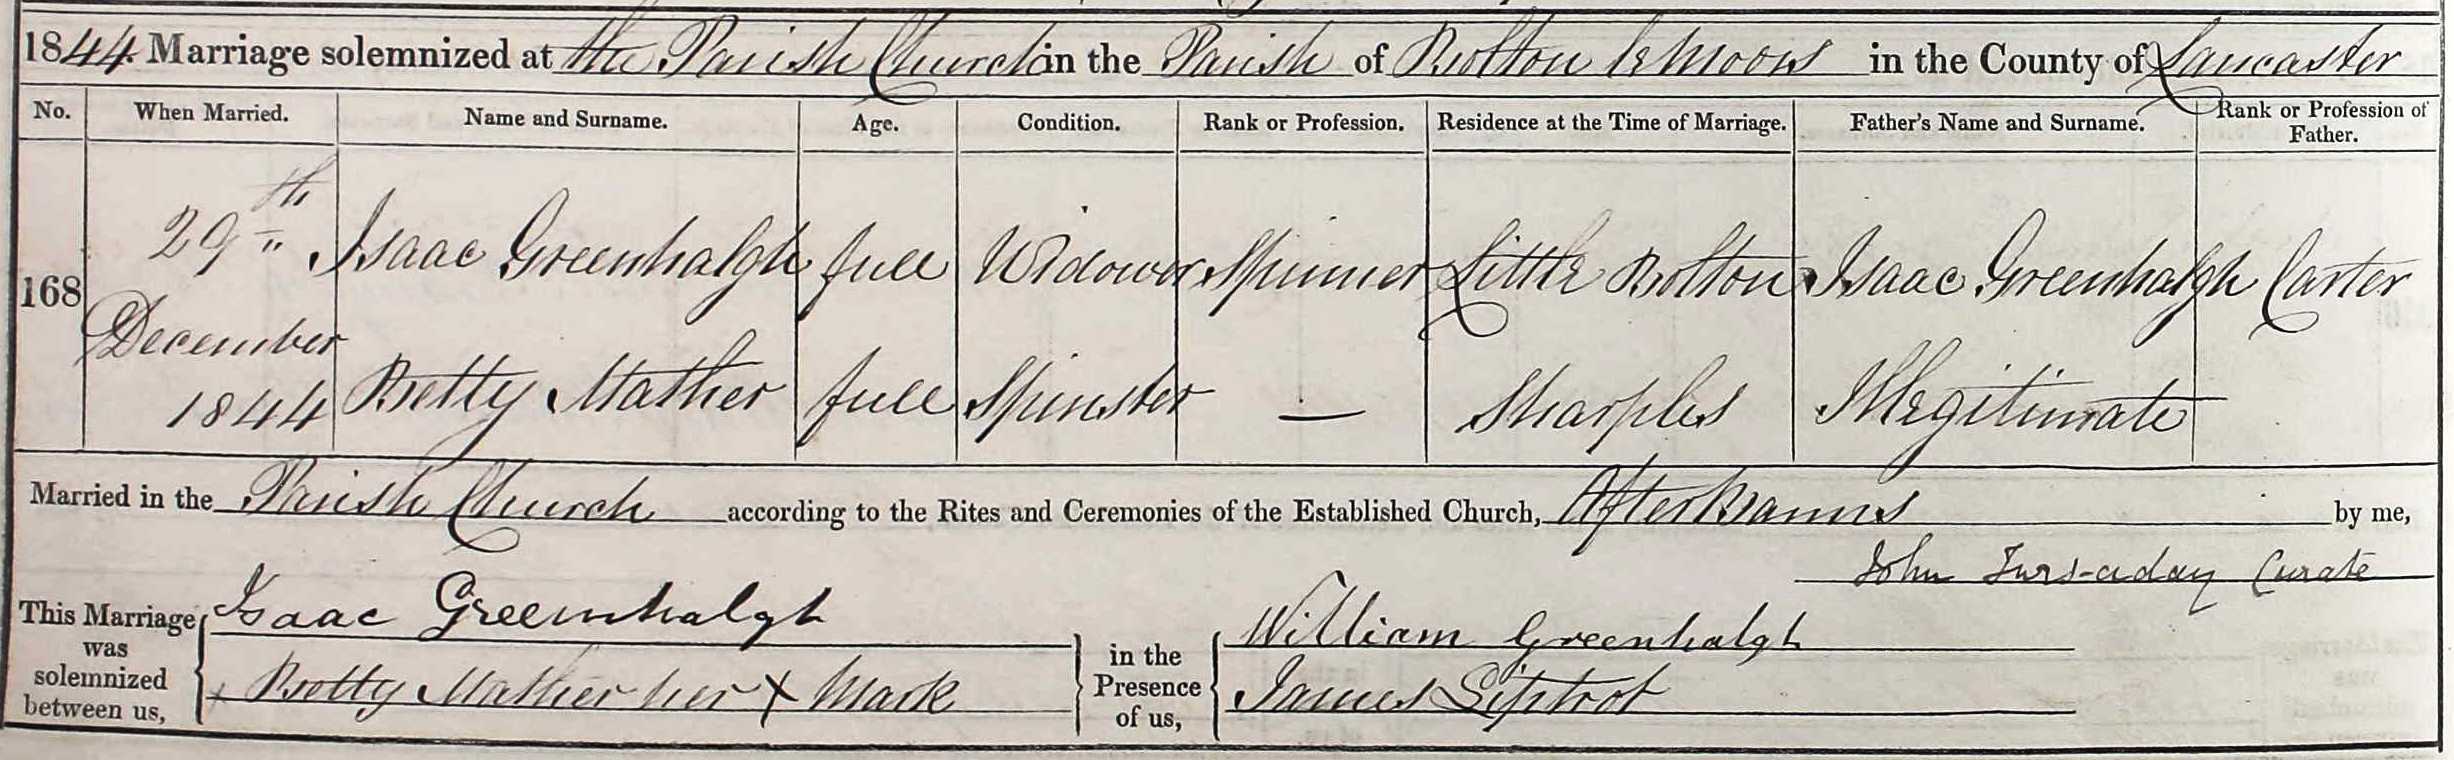 1844 Marriage solemnized at the Parish Church in the Parish of Bolton le Moors in the County of Lancaster
No. When Married. Name and Surname. Age. Condition. Rank or Profession. Residence at the Time of Marriage. Father's Name and Surname. Rank or Profession of Father.
168 29th December 1844
Isaac Greenhalgh full Widower Spinner Little Bolton Isaac Greenhalgh Carter
Betty Mather full Spinster — Sharples Illegitimate —
Married in the Parish Church according to the Rites and Ceremonies of the Established Church, After Banns by me,
John Curate
This Marriage was solemnized between us,
Isaac Greenhalgh
Betty Mather her X Mark
in the Presence of us,
William Greenhalgh
James Siptrot